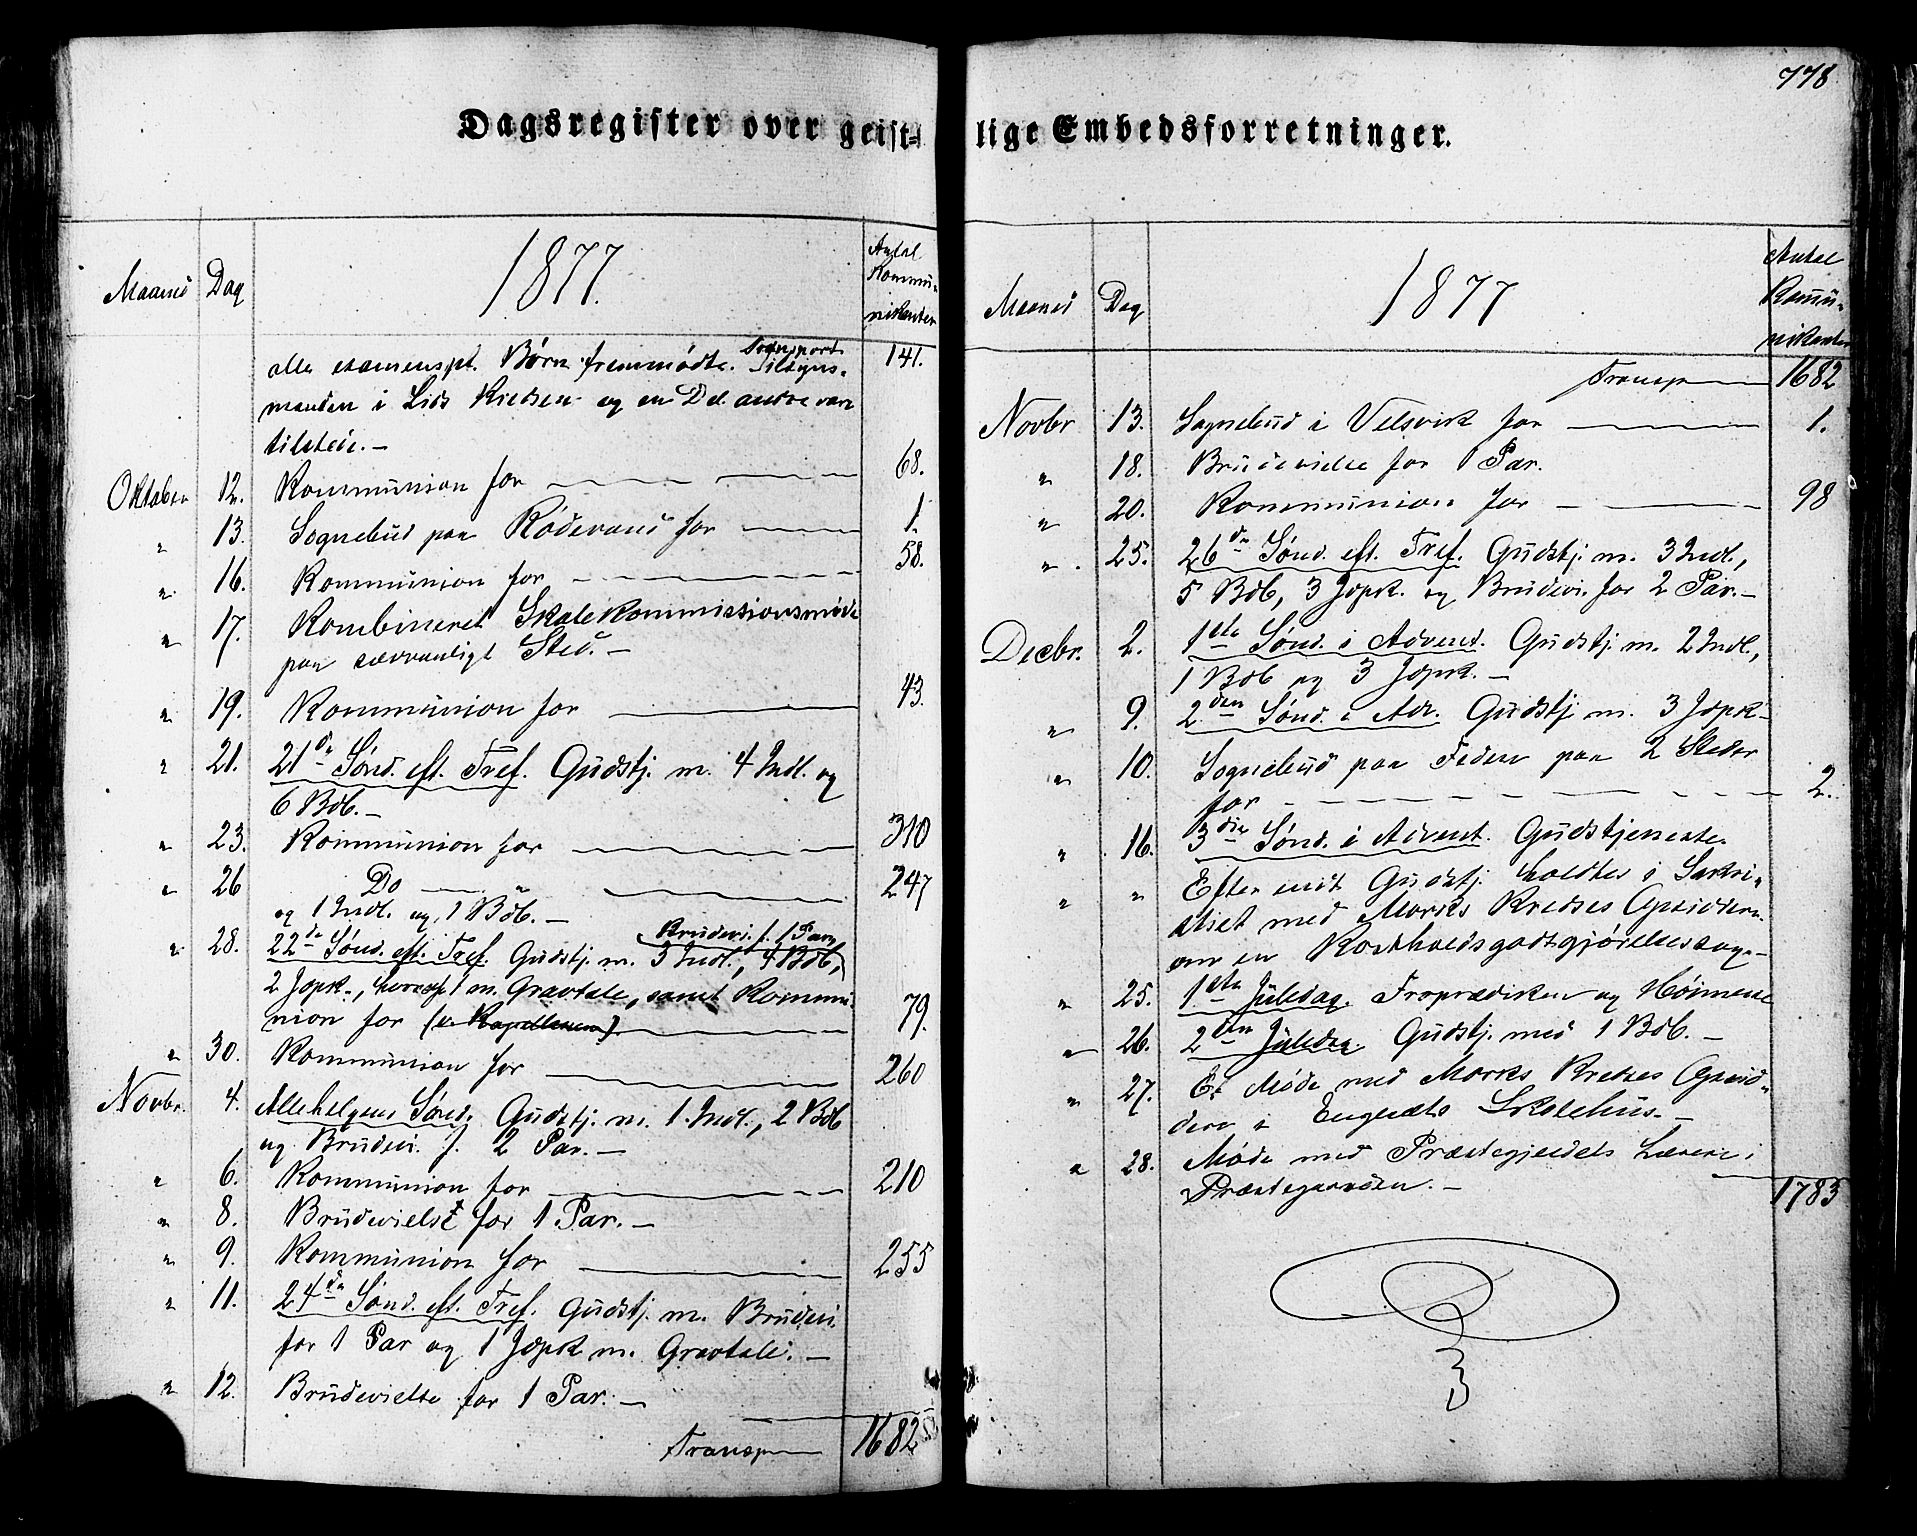 778
Dagsregister over geist-lige Embedsforretninger.
Maaned Dag 1877. Antal Kommunikanter
alle examenspl. Børn fremmødte. Transport 141.
Tilsyns-
manden i Lids Kredsen og en Del andre vare
tilstede.—
Oktober 12. Kommunion for 68.
" 13. Sognebud paa Rødevand for 1.
" 16. Kommunion for 58.
" 17. Kombineret Skolekommissionsmøde
paa sædvanligt Sted.—
" 19. Kommunion for 43.
" 21. 21de Sønd. eft. Tref. Gudstj. m. 4 Indl. og
6 Bdb.—
" 23. Kommunion for 310
" 26 Do " 247
og 1 Indl. og 1 Bdb.—
Brudevi. f. 1 Par,
" 28. 22de Sønd. eft. Tref. Gudstj. m. 3 Indl., 4 Bdb,
2 Jopk., hvoraf 1 m. Gravtale, samt Kommu-
nion for (i Kapellenen) 79.
" 30. Kommunion for 260
Novbr. 4. Allehelgens Sønd. Gudstj. m. 1 Indl., 2 Bdb
og Brudevi. f. 2 Par.—
" 6. Kommunion for 210
" 8. Brudevielse for 1 Par.—
" 9. Kommunion for 255
" 11. 24de Sønd. eft. Tref. Gudstj. m. Brudevi.
for 1 Par og 1 Jopk m. Gravtale.—
" 12. Brudevielse for 1 Par.—
Transp 1682
Maaned Dag 1877 Antal Kommunikanter
Transp 1682
Novbr 13. Sognebud i Velsvik for 1.
" 18. Brudevielse for 1 Par.
" 20. Kommunion for 98
" 25. 26de Sønd. eft. Tref. Gudstj. m. 3 Indl.,
5 Bdb, 3 Jopk. og Brudevi. for 2 Par.—
Decbr. 2. 1ste Sønd. i Advent. Gudstj. m. 2 Indl.,
1 Bdb og 3 Jopk.—
" 9. 2den Sønd. i Adv. Gudstj m. 3 Jopk—
" 10. Sognebud paa Feden paa 2 Steder
for 2.
" 16. 3die Sønd. i Advent. Gudstjeneste.
" " Efter endt Gudstj. holdtes i Sakri-
stiet med Morks Kredses Opsiddere
om en Kostholdsgodtgjørelsessag.—
" 25. 1ste Juledag. Froprædiken og Høimesse
" 26. 2den Juledag. Gudstj. med 1 Bdb.—
" 27. Et Møde med Morks Kredses Opsid-
dere i Engesæts Skolehus.—
" 28. Møde med Præstegjeldets Lærere i
Præstegaarden.— 1783